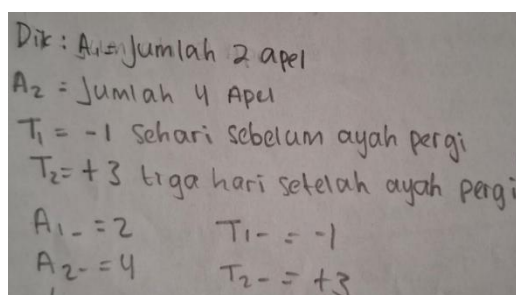 Dik : A₁ = Jumlah 2 apel
A₂ = Jumlah 4 Apel
T₁ = -1 sehari sebelum ayah pergi
T₂ = +3 tiga hari setelah ayah pergi
A₁- = 2 T₁- = -1
A₂- = 4 T₂- = +3